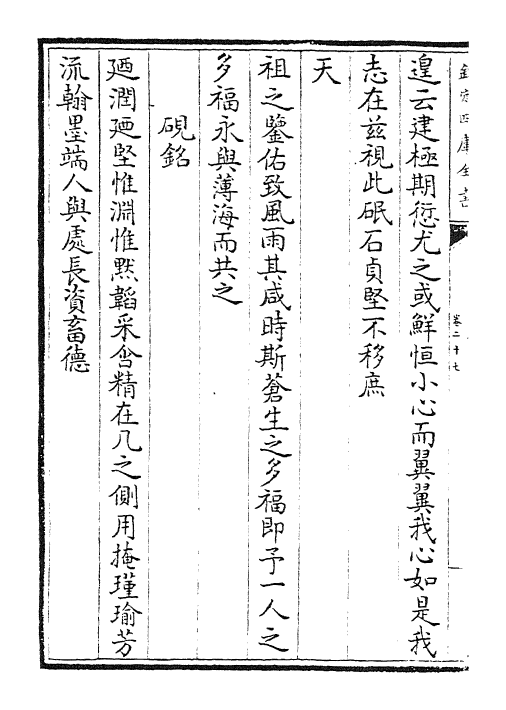 欽定四庫全書
卷二十七
遑云建極期愆尤之或鮮恒小心而翼翼我心如是我
志在兹視此砥石貞堅不移庶
天
祖之鑒佑致風雨其咸時斯蒼生之多福即予一人之
多福永與薄海而共之
硯銘
廼潤廼堅惟淵惟默韜采含精在几之側用掩瑾瑜芳
流翰墨端人與處長資畜德